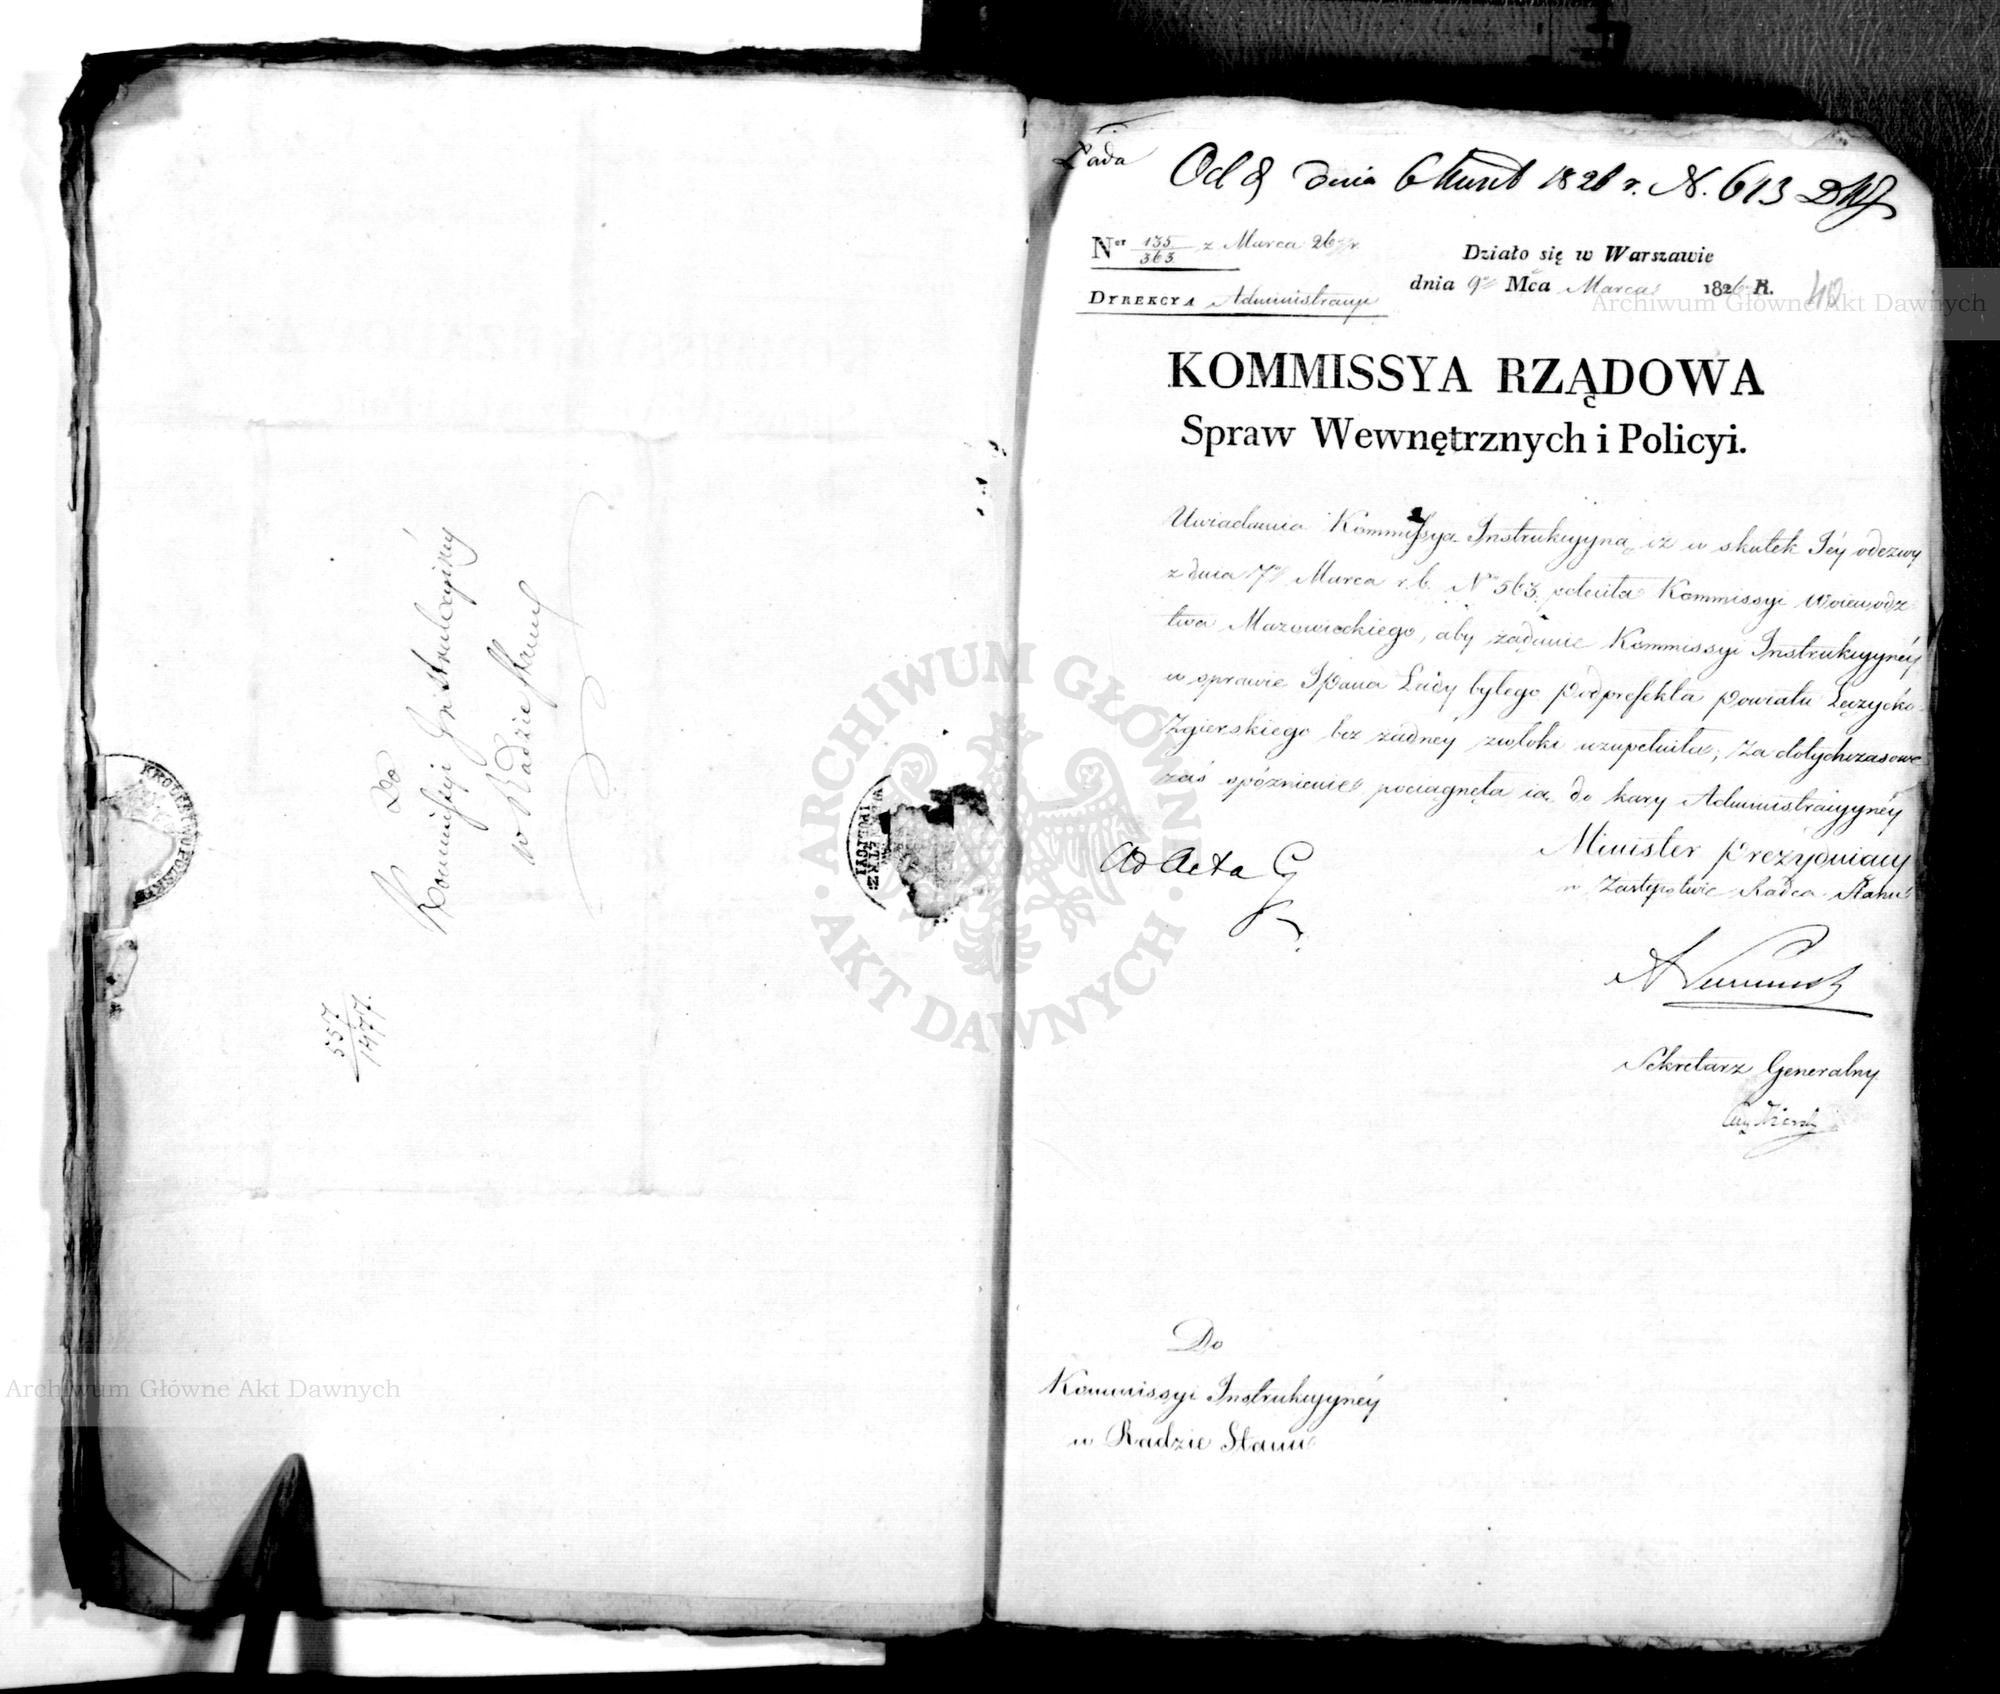 Do
Kommissyi Instrukcyiney
w Radzie Stanu
557
1477.
KROLESTWO POLSKIE
Łada
Od d dnia 6 1826 r. N. 613
Ner 135/363 z Marca 26 r.
Działo się w Warszawie
dnia 9 Mca Marca 1826 R.
40
DYREKCYA Administracyi
KOMMISSYA RZĄDOWA
Spraw Wewnętrznych i Policyi.
Uwiadamia Kommissyą Instrukcyyną iż w skutek Jéy odezwy
z dnia 7 Marca r.b. No 563. poleciła Kommissyi Woiewodz-
twa Mazowieckiego, aby żądanie Kommissyi Instrukcyynéy
w sprawie JPana Łady byłego Podprefekta Powiatu Łęczycko-
Zgierskiego bez żadnéy zwłoki uzupełniła; za dotychczasowe
zaś spóźnienie pociągnęła ią do kary Administracyynéy
Minister Prezyduiący
w Zastępstwie Radca Stanu
Ad Acta
Sekretarz Generalny
Do
Kommissyi Instrukcyynéy
w Radzie Stanu
ARCHIWUM GŁÓWNE AKT DAWNYCH
Archiwum Główne Akt Dawnych
Archiwum Główne Akt Dawnych